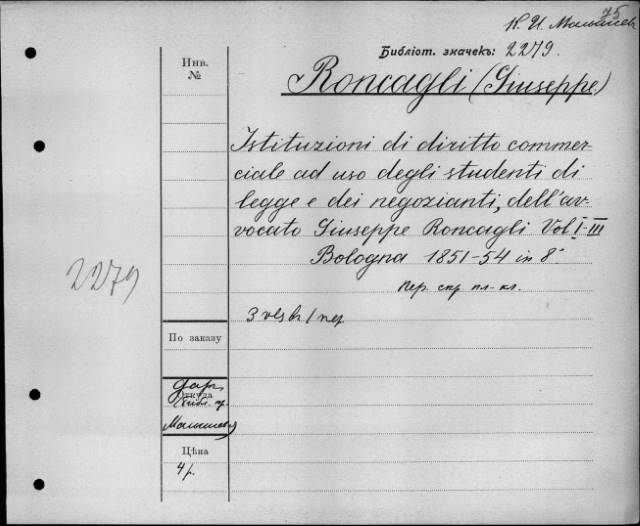 75
К. И. Малышев
Библіот. значекъ: 2279.
Инв.
№
Roncagli (Giuseppe)
Istituzioni di diritto commer-
ciale ad uso degli studenti di
legge e dei negozianti, dell'av-
vocato Giuseppe Roncagli Vol I-III
Bologna 1851-54 in 8°
2279
Пер. скр пл.-кл.
3 vls въ 1 пер
По заказу
Откуда
Даръ
Библ. пр.
Малышева
Цѣна
4 р.